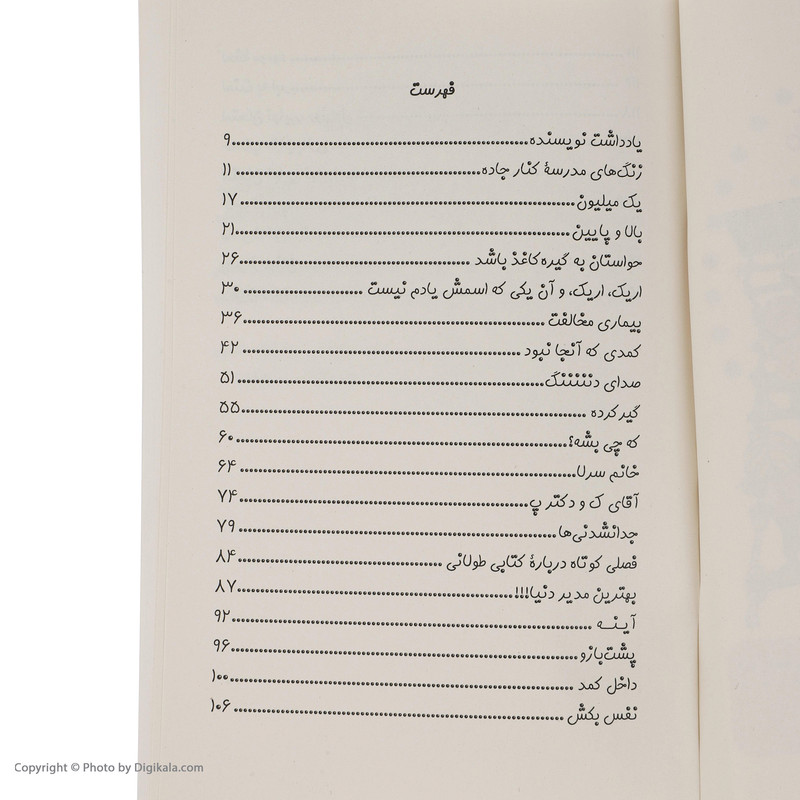 فهرست
یادداشت نویسنده.....۹
زنگ‌های مدرسهٔ کنار جاده.....۱۱
یک میلیون.....۱۷
بالا و پایین.....۲۱
حواستان به گیره کاغذ باشد.....۲۶
اریک، اریک، و آن یکی که اسمش یادم نیست.....۳۰
بیماری مخالفت.....۳۶
کمدی که آنجا نبود.....۴۲
صدای دنننننگ.....۵۱
گیر کرده.....۵۵
که چی بشه؟.....۶۰
خانم سرلا.....۶۴
آقای ک و دکتر پ.....۷۴
جدانشدنی‌ها.....۷۹
فصلی کوتاه دربارهٔ کتابی طولانی.....۸۴
بهترین مدیر دنیا!!!.....۸۷
آینه.....۹۲
پشت‌بازو.....۹۶
داخل کمد.....۱۰۰
نفس بکش.....۱۰۶
Copyright © Photo by Digikala.com